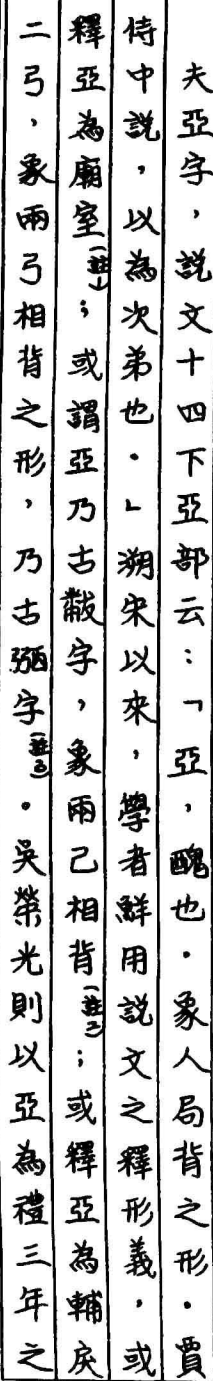 夫亞字，說文十四下亞部云：「亞，醜也．象人局背之形．賈
侍中說，以為次弟也．」溯宋以來，學者鮮用說文之釋形義，或
釋亞為廟室(註1)；或謂亞乃古黻字，象兩己相背(註二)；或釋亞為輔戾
二弓，象兩弓相背之形，乃古弼字(註三)．吳榮光則以亞為禮三年之